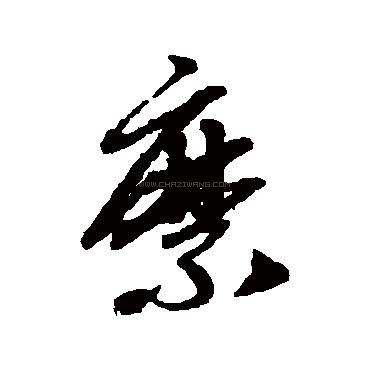 縻
www.chaziwang.com